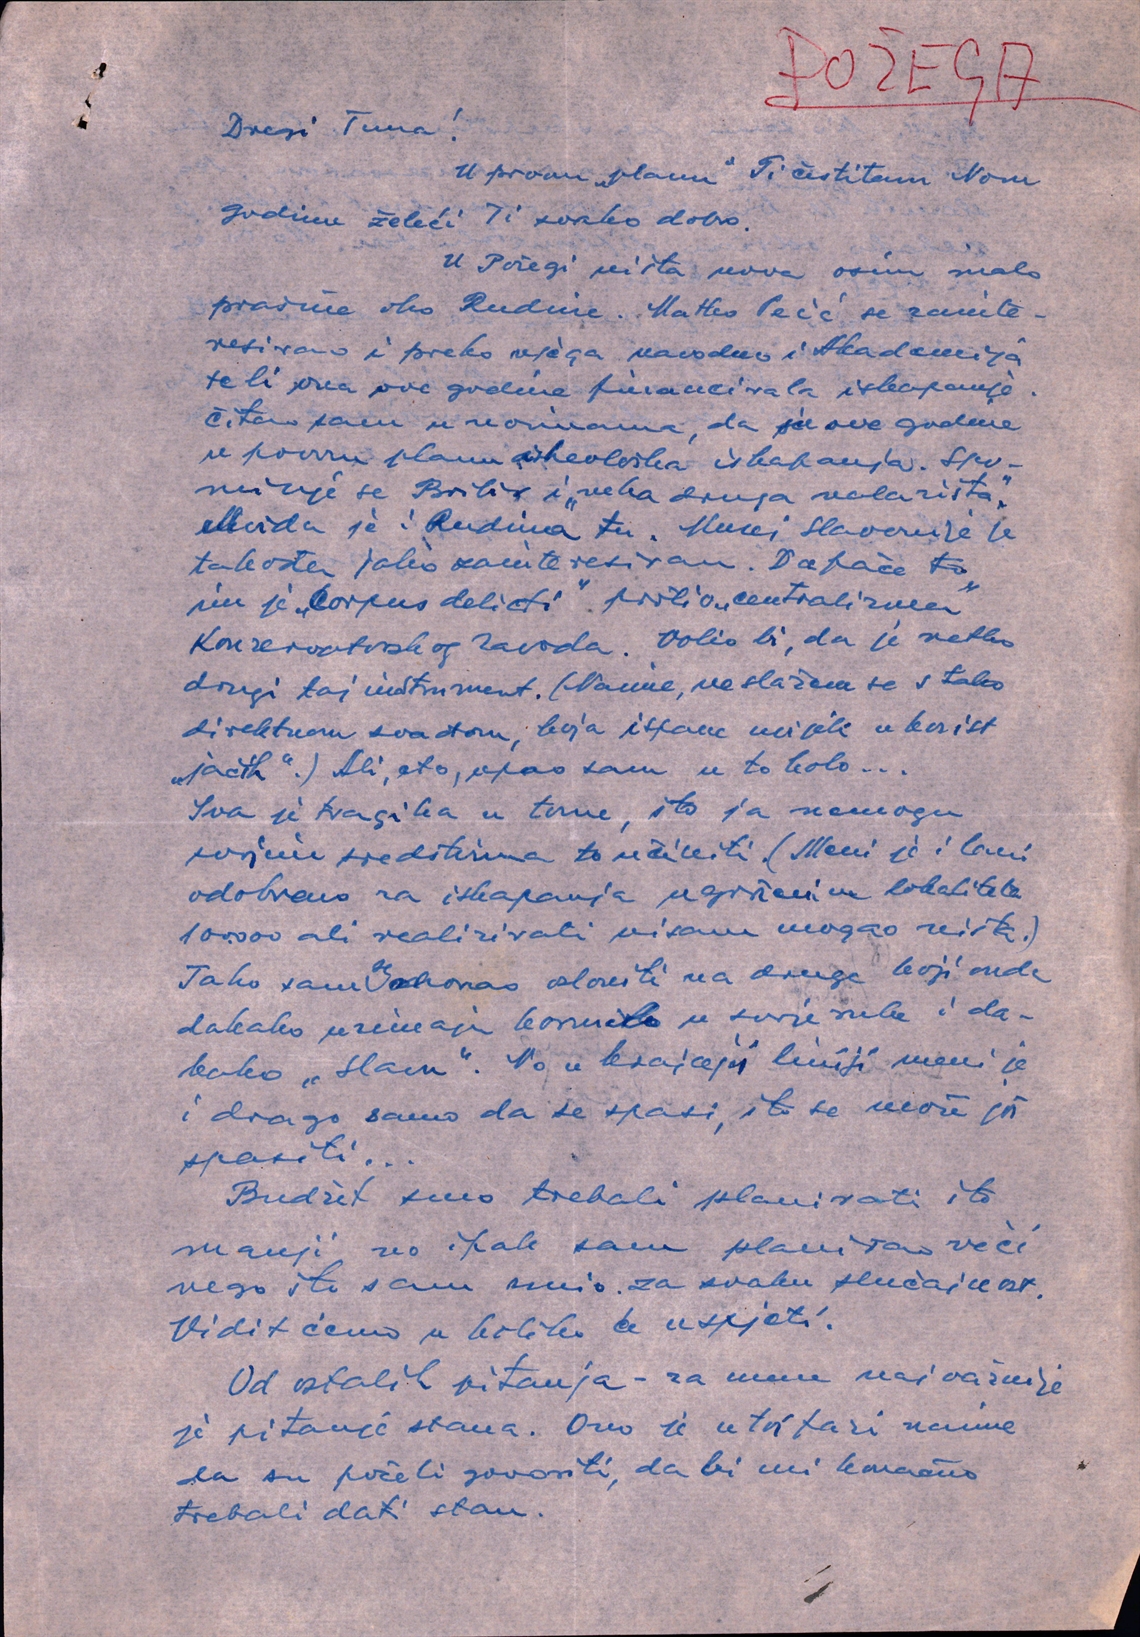 POŽEGA
Dragi Tuna!
U prvom „planu“ Ti čestitam Novu
godinu želeći Ti svako dobro.
U Požegi ništa nova osim malo
prašine oko Rudine. Matko Peić se zainte-
resirao i preko njega navodno i Akademija
te bi ona ove godine financirala iskapanje.
Čitao sam u novinama, da je ove godine
u povom planu arheološka iskapanja. Spo-
minje se Bribir i „neka druga nalazišta“,
Možda je i Rudina tu. Muzej Slavonije je
također jako zainteresiran. Dapače to
im je „Corpus delicti“ protiv „centralizma“
Konzervatorskog Zavoda. Volio bi, da je netko
drugi taj instrument. (Naime, ne slažem se s tako
direktnom svađom, koja ispane uvijek u korist
„jačih“.) Ali, eto, upao sam u to kolo...
Sva je tragika u tome, što ja nemogu
svojim sredstvima to učiniti. (Meni je i lani
odobreno za iskapanja ugroženim lokaliteta
100.000 ali realizirati nisam mogao ništa.)
Tako sam se morao osloniti na druge koji onda
dakako uzimaju kormilo u svoje ruke i da-
kako „slavu“. No u krajnjoj liniji meni je
i drago samo da se spasi, što se može još
spasiti...
Budžet smo trebali planirati što
manji, no ipak sam planirao veći
nego što sam smio. za svaku slučajnost.
Vidit ćemo u koliko će uspjeti.
Od ostalih pitanja - za mene najvažnije
je pitanje stana. Ono je u toj fazi naime
da su počeli govoriti, da bi mi konačno
trebali dati stan.